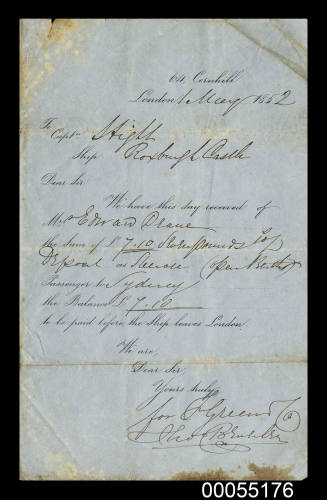 64, Cornhill
London 1 May 1852
To
Captn Hight
Ship Roxburgh Castle
Dear Sir
We have this day received of
Mr Edward Crane
the Sum of £ 7.10
Deposit as Steerage (open Berths)
Passenger to Sydney
the Balance £ 7.10
to be paid before the Ship leaves London.
We are,
Dear Sir,
Yours truly,
for F Green & Co
00055176